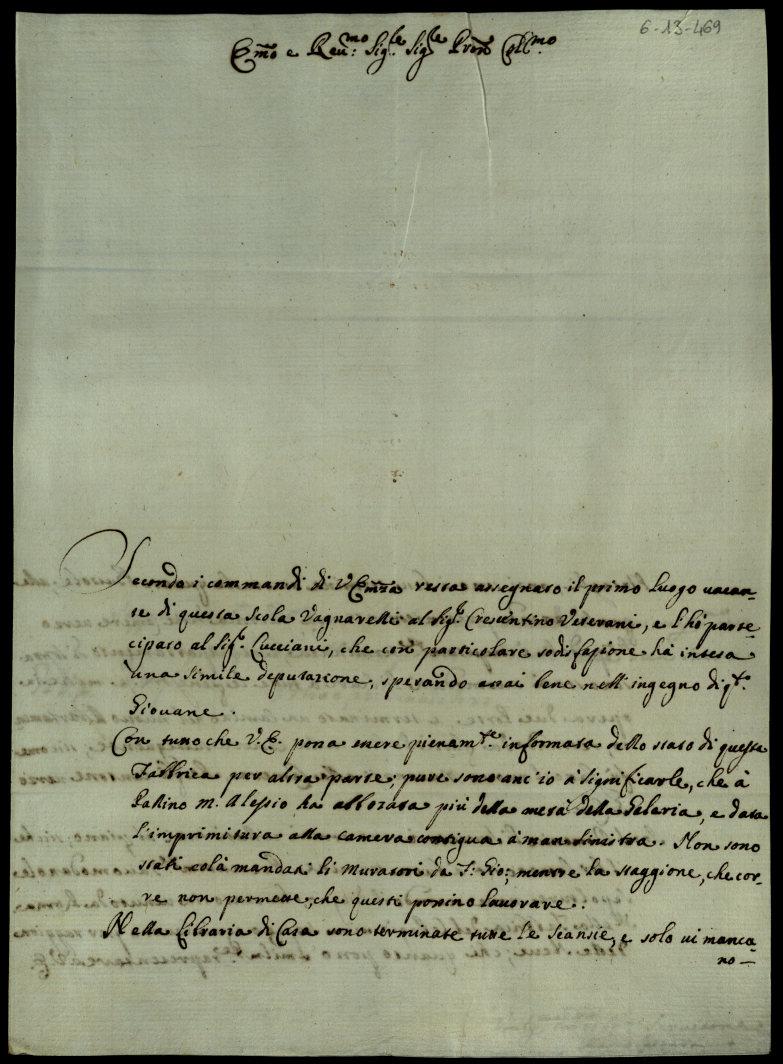 6-13-469
E͞mo e Reu:mo Sig.re Sig.re Pron͞ Col.mo
Secondo i commandi di V. Em͞za resta assegnato il primo luogo uacan-
te di questa Scola Vagnarelli al Sig.r Crescentino Veterani, e l'hò parte-
cipato al Sig.r Lucciani, che con particolare sodisfazione hà intesa
una simile deputazione, sperando assai bene nell'ingegno di q.to
Giouane.
Con tutto che V. E. possa essere pienam.te informata dello stato di questa
Fabbrica per altra parte; pure sono anc'io à significarle, che à
Pallino m. Alessio ha abbozata più della metà della Galaria, e data
l'imprimitura alla camera contigua à man sinistra. Non sono
stati colà mandati li muratori da S. Gio; mentre la staggione, che cor-
re non permette, che questi possino lauorare.
Nella Libraria di Casa sono terminate tutte le scansie, e solo ui manca-
no